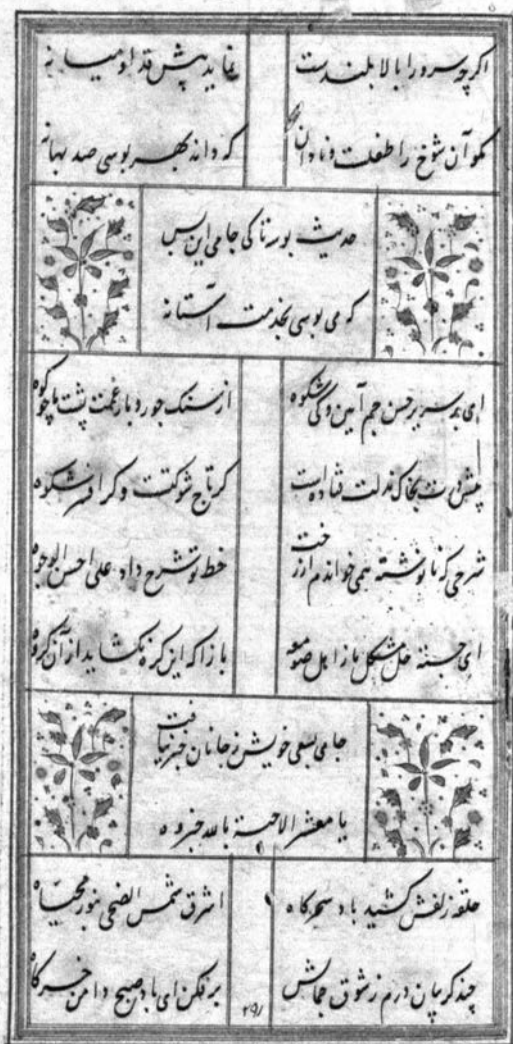 اگرچه سرو را بالا بلندست نماید پیش قد او میانه
مگو آن شوخ را طفلست و نادان که داند بهر بوسی صد بهانه
حدیث بوسه تا کی جامی این بس
که می بوسی بخدمت آستانه
ای بر سریر حسن جم آیین و کی شکوه از سنک جور و بار غمت پشت ما چو کوه
پیش درت بخاک مذلت فتاده است کر تاج شوکتست و کر افسر شکوه
شرحی که نانوشته همی خواندم از رخت خط تو شرح داد علی احسن الوجوه
ای جسته حل مشکل ما ز اهل صومعه بازآ که این کره نکشاید از آن کروه
جامی بسعی خویش ز جانان خبر نیافت
یا معشر الاحبة بالله خبروه
حلقه زلفش کشید باد سحرکاه اشرق شمس الضحی بنور محیاه
چند کریبان درم ز شوق جمالش برفکن ای باد صبح دامن خرکاه
۲۹۱